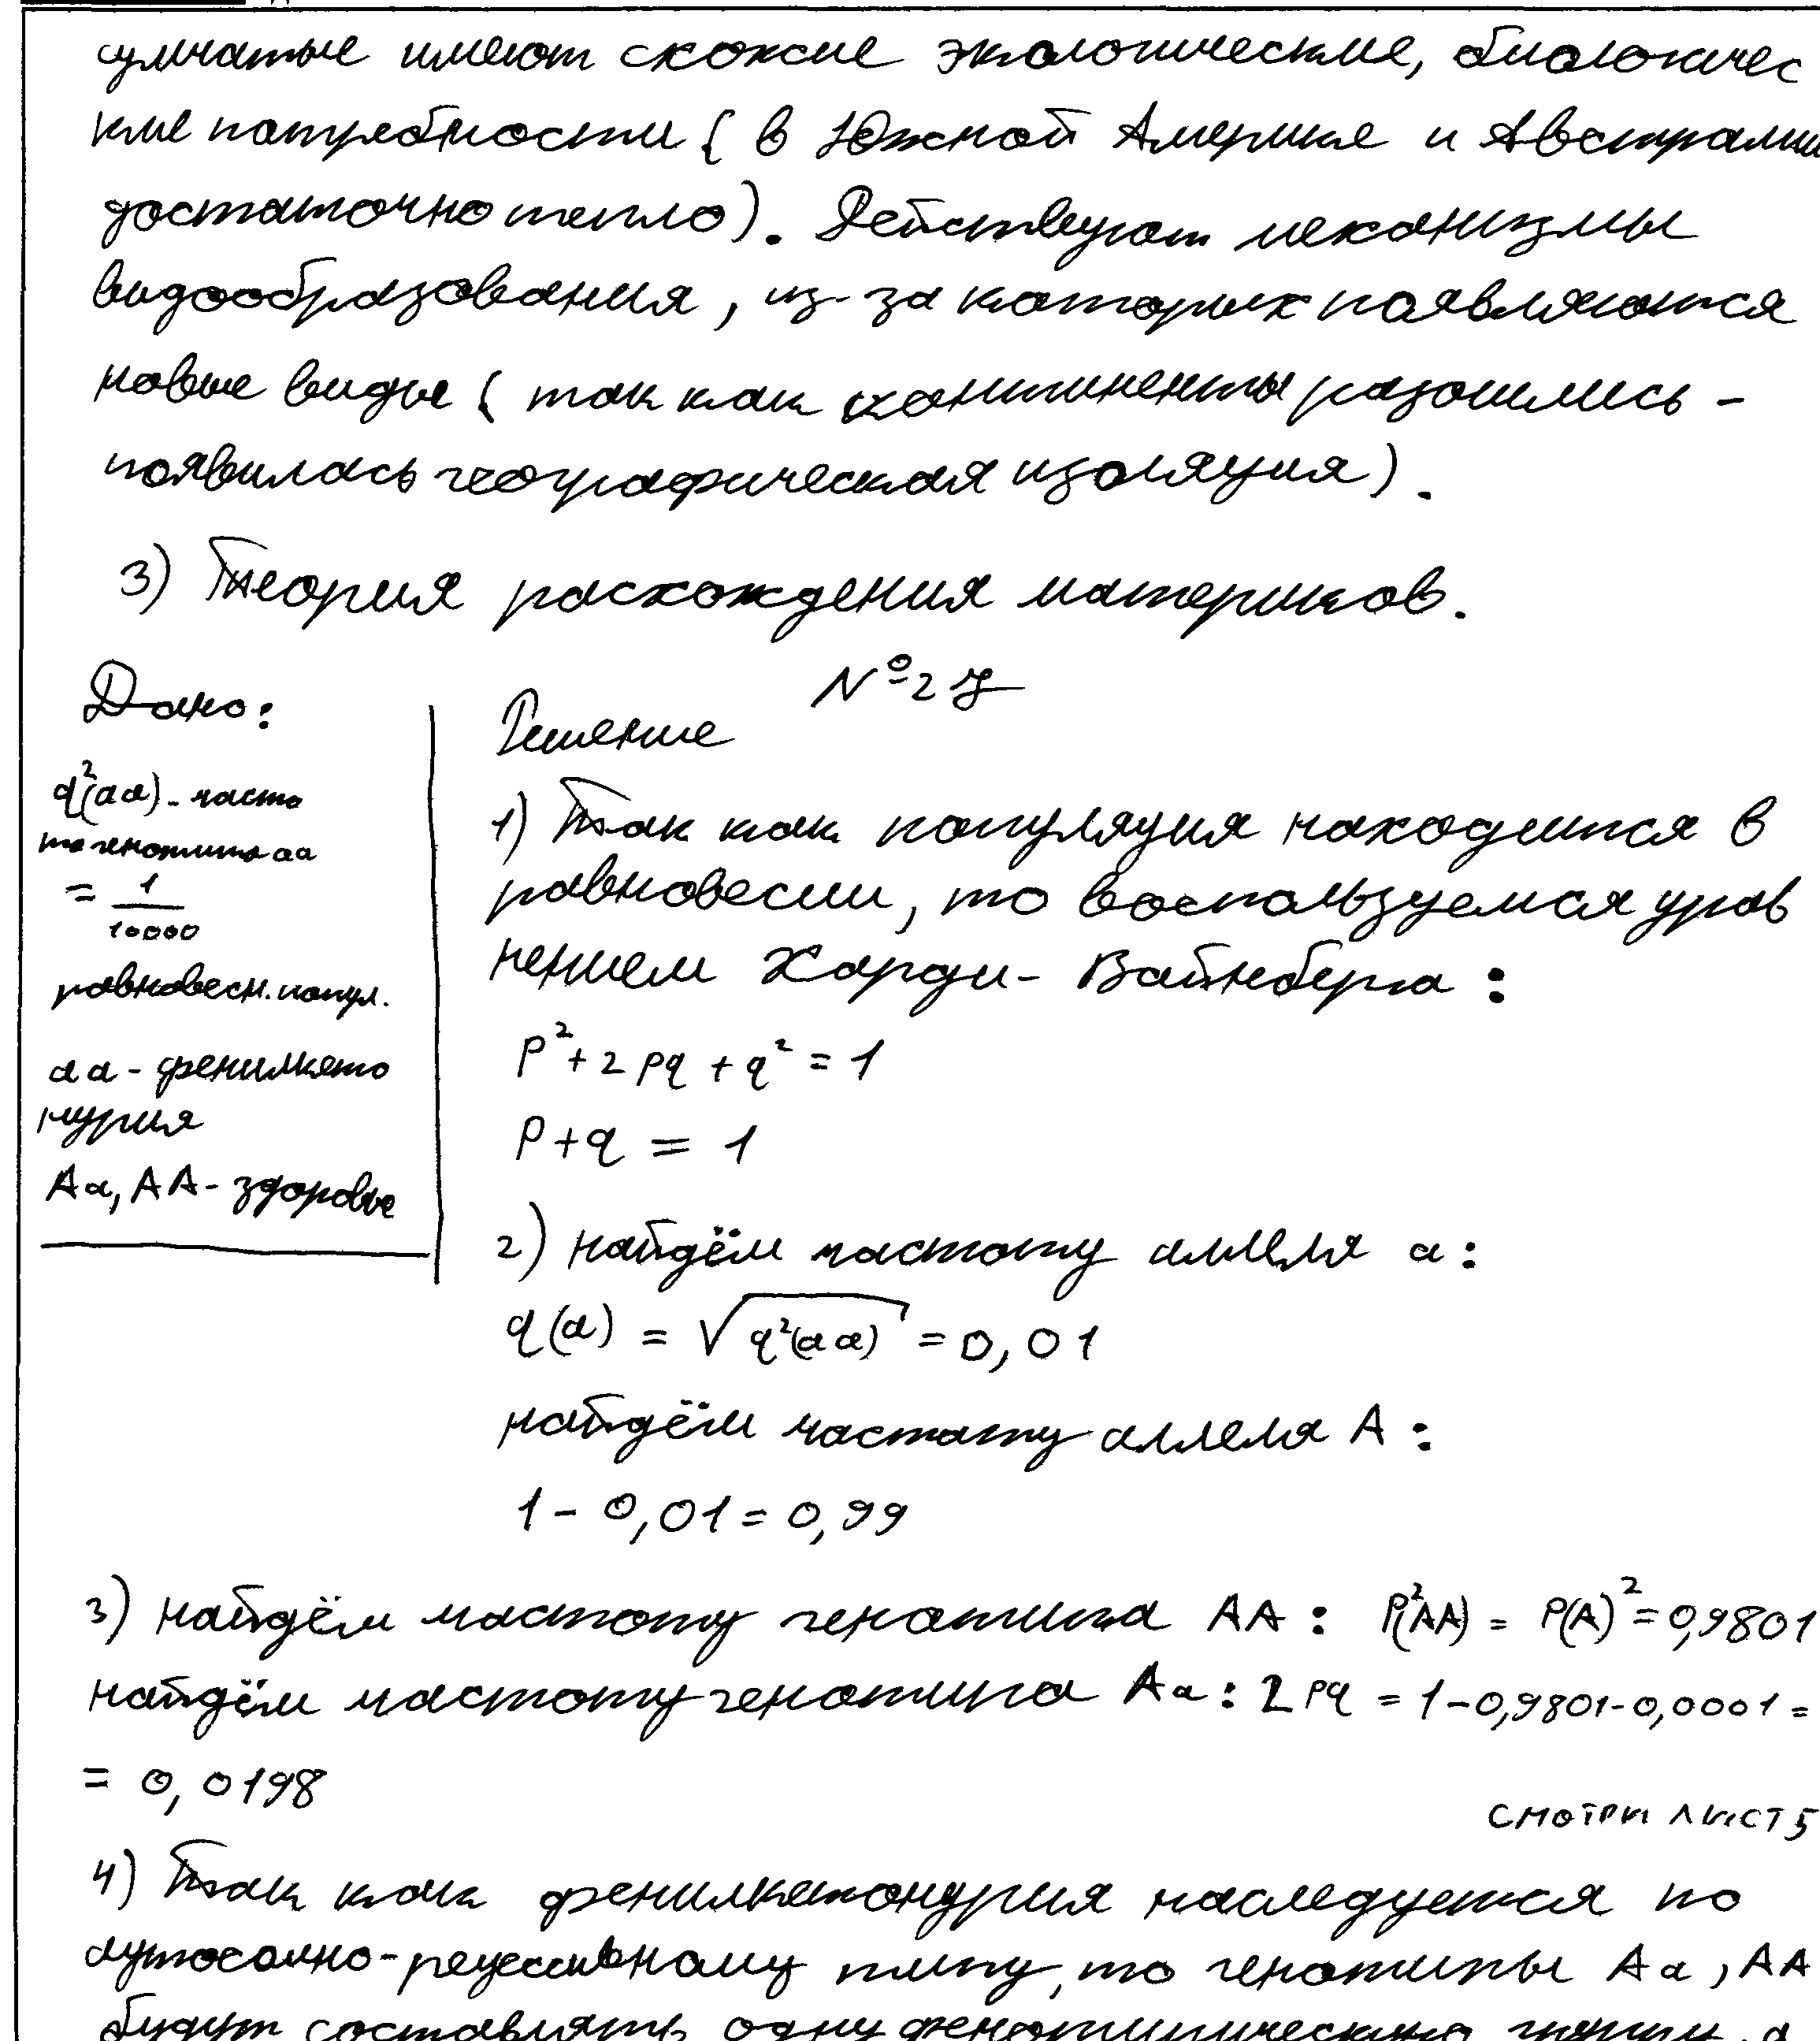 сумчатые имеют схожие экологические, биологичес
кие потребности (в Южной Америке и Австралии
достаточно тепло). Действуют механизмы
видообразования, из-за которых появляются
новые виды (так как континенты разошлись -
появилась географическая изоляция).
3) Теория расхождения материков.
№27
Дано:
q²(aa) - часто
та генотипа aa
= 1/10000
равновесн. попул.
aa - фенилкето
нурия
Aa, AA - здоровые
Решение
1) Так как популяция находится в
равновесии, то воспользуемся урав
нением Харди-Вайнберга:
p² + 2pq + q² = 1
p + q = 1
2) найдём частоту аллеля a:
q(a) = √q²(aa) = 0,01
найдём частоту аллеля A:
1 - 0,01 = 0,99
3) найдём частоту генотипа AA: p²(AA) = p(A)² = 0,9801
найдём частоту генотипа Aa: 2pq = 1-0,9801-0,0001 =
= 0,0198
СМОТРИ ЛИСТ 5
4) Так как фенилкетонурия наследуется по
аутосомно-рецессивному типу, то генотипы Aa, AA
будут составлять одну фенотипическую группу, а